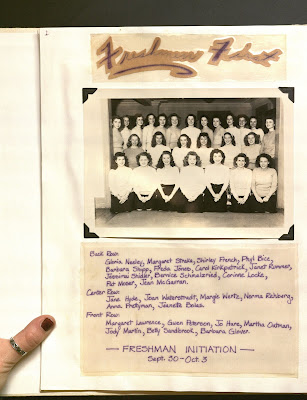 Freshman
Back Row:
Gloria Neeley, Margaret Strake, Shirley French, Phyl Bice,
Barbara Stupp, Freda Jones, Carol Kirkpatrick, Janet Rimmer,
Snider, Bernice Schmalzried, Corinne Locke,
Pat Meser, Jean McGurran.
Center Row:
Jane Hyde, Joan Waterstradt, Margie Wertz, Norma Rehburg,
Anna Prettyman, Jeanette Beles.
Front Row:
Margaret Lawrence, Gwen Peterson, Jo Hane, Martha Oatman,
Jody Martin, Betty Sandbrook, Barbara Glover.
— FRESHMAN INITIATION —
Sept. 30 - Oct. 3